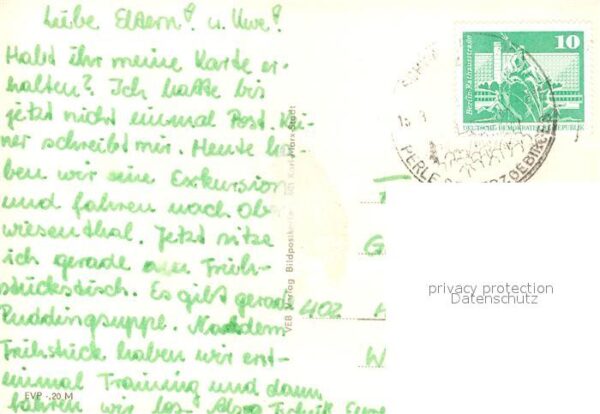 Liebe Eltern! u. Uwe!
Habt ihr meine Karte er-
halten? Ich hatte bis
jetzt nicht einmal Post. Kei-
ner schreibt mir. Heute ha-
ben wir eine Exkursion
und fahren nach Ob
wiesenthal. Jetzt sitze
ich gerade am Früh-
stückstisch. Es gibt gerade
Puddingsuppe. Nachdem
Frühstück haben wir erst-
einmal Training und dann
fahren wir los. Also Tschüß Eure
EVP -,20 M
VEB Verlag Bildpostkarten
Karl-Marx-Stadt
Berlin·Rathausstraße
10
DEUTSCHE DEMOKRATISCHE REPUBLIK
PERLE ERZGEBIRGES
402
G
W
privacy protection
Datenschutz